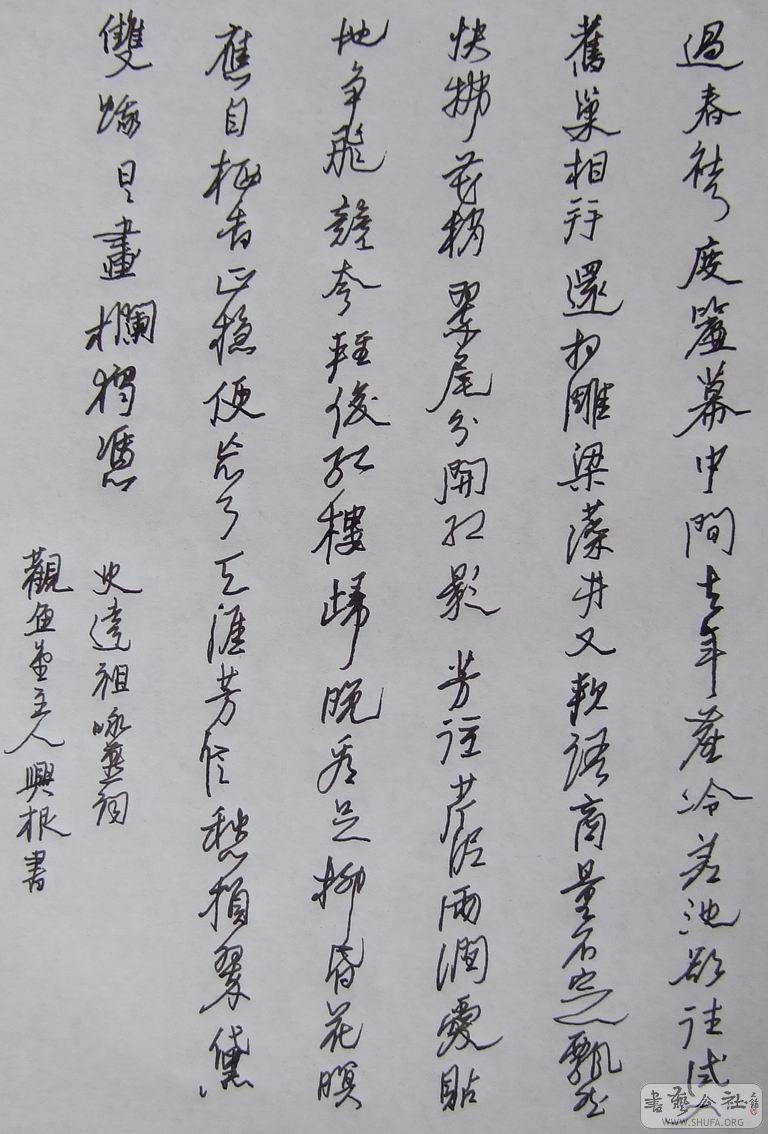 過春社度簾幕中間去年塵冷差池欲住試入
舊巢相并還相雕梁藻井又軟語商量不定飄然
快拂花梢翠尾分開紅影芳徑芹泥雨潤愛貼
地争飛競夸輕俊紅樓歸晚看足柳昏花暝
應自栖香正穩便忘了天涯芳信愁損翠黛
雙蛾日日畫欄獨憑
史達祖咏燕詞
觀魚堂主人興根書
書藝公社
WWW.SHUFA.ORG